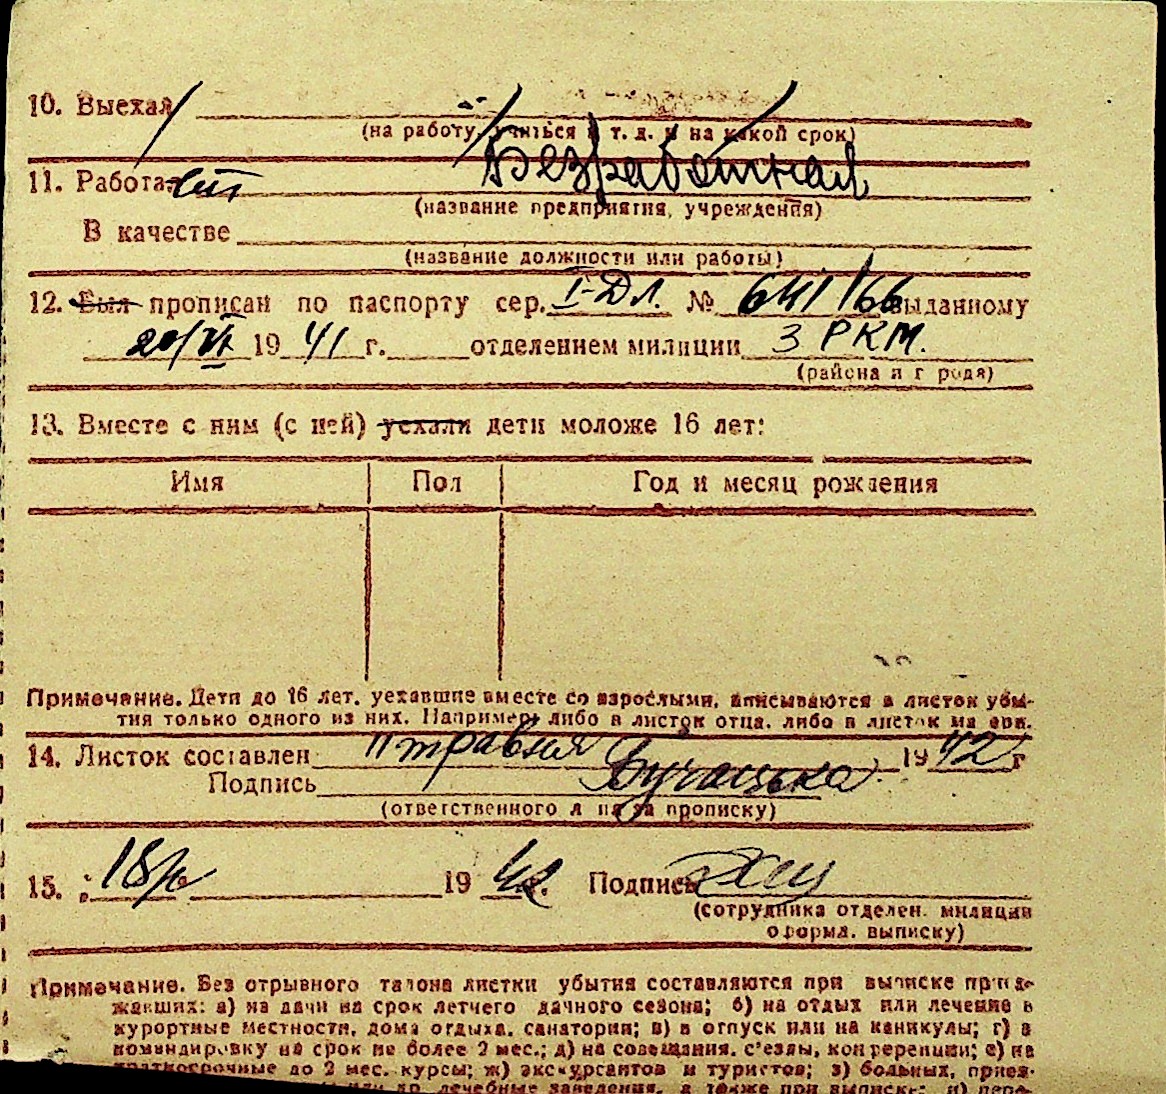 10. Выехал
(на работу, учиться и т. д. и на какой срок)
11. Работает Безработная
(название предприятия, учреждения)
В качестве
(название должности или работы)
12. Был прописан по паспорту сер. I-Дл. № 641166 выданному
20/VI 1941 г. отделением милиции 3 РКМ.
(района и города)
13. Вместе с ним (с ней) уехали дети моложе 16 лет:
Имя Пол Год и месяц рождения
Примечание. Дети до 16 лет, уехавшие вместе со взрослыми, вписываются в листок убы-
тия только одного из них. Например, либо в листок отца, либо в листок матери.
14. Листок составлен 11 травня 1942 г
Подпись
(ответственного лица за прописку)
15. 18/ 1942 г. Подпись
(сотрудника отделен. милиции
оформл. выписку)
Примечание. Без отрывного талона листки убытия составляются при выписке приез-
жавших: а) на дачи на срок летнего дачного сезона; б) на отдых или лечение в
курортные местности, дома отдыха, санатории; в) в отпуск или на каникулы; г) в
командировку на срок не более 2 мес.; д) на совещания, с'езды, конференции; е) на
краткосрочные до 2 мес. курсы; ж) экскурсантов и туристов; з) больных, приез-
или др. лечебные заведения, а также при выписке: и) пере-